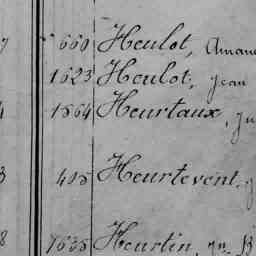 7 660 Heulot, Aman
1623 Heulot, Jean
1864 Heurtaux, Ju
3 405 Heurtevent, J
8 1635 Heurtin, Jn B